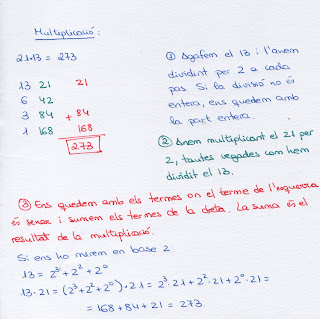 Multiplicació:
21·13 = 273
13 21 21
6 42
3 84 + 84
1 168 168
273
① Agafem el 13 i l'anem
dividint per 2 a cada
pas. Si la divisió no és
entera, ens quedem amb
la part entera.
② Anem multiplicant el 21 per
2, tantes vegades com hem
dividit el 13.
③ Ens quedem amb els termes on el terme de l'esquerra
és senar i sumem els termes de la dreta. La suma és el
resultat de la multiplicació.
Si ens ho mirem en base 2:
13 = 2³ + 2² + 2⁰
13·21 = (2³ + 2² + 2⁰)·21 = 2³·21 + 2²·21 + 2⁰·21 =
= 168 + 84 + 21 = 273.